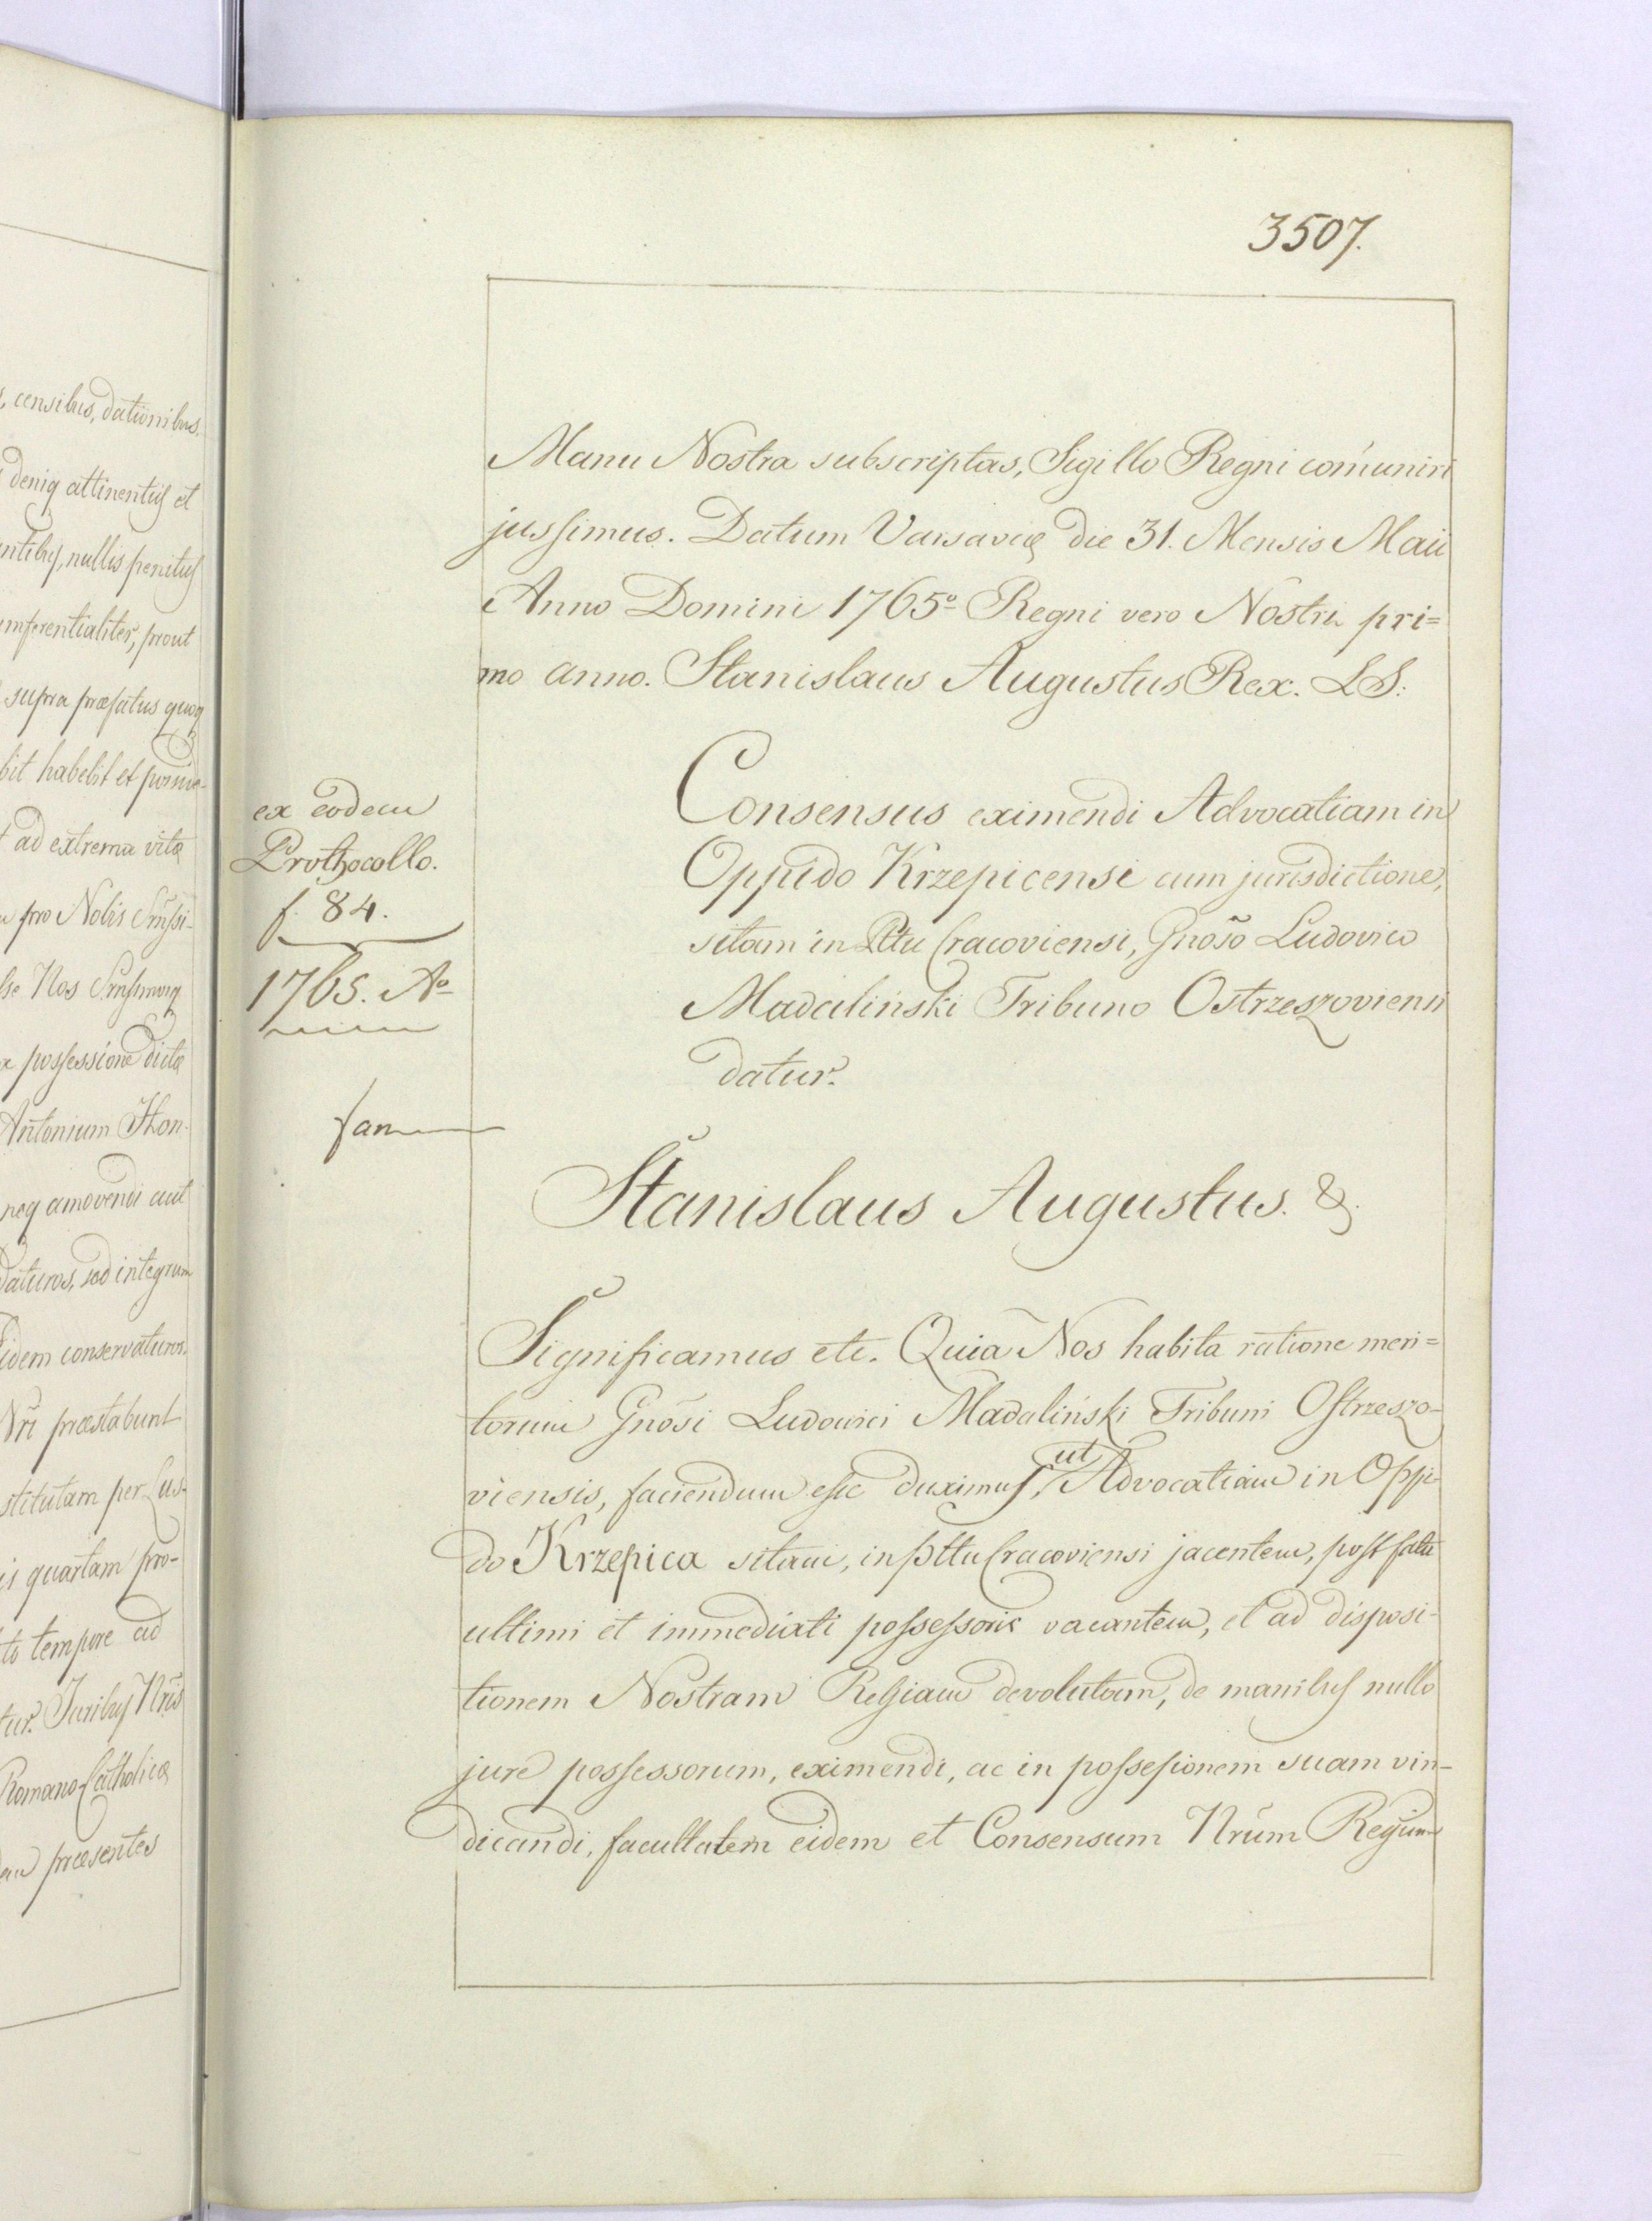 , censibus, dationibus.
deniq attinentijs et
entibus, nullis penitus
imferentialiter, prout
supra præfatus quoq
bit habebit et
ad extrema vitæ
pro Nobis
Nos
possessione dictæ
Antonium
neq amovendi aut
daturos, sed integrum
Eidem conservaturos.
Nri præstabunt
stitutam per Lus-
is quartam pro-
to tempore ad
tur. Juribus Nris
Romano Catholicæ
præsentes
3507.
Manu Nostra subscriptas, Sigillo Regni com̄uniri
jussimus. Datum Varsaviæ die 31. Mensis Maii
Anno Domini 1765º Regni vero Nostri pri=
mo anno. Stanislaus Augustus Rex. LS:
ex eodem
Prothocollo.
f. 84.
1765. Aº
fam
Consensus eximendi Advocatiam in
Oppido Krzepicensi cum jurisdictione,
sitam in Pttu Cracoviensi, Gnoso Ludovico
Madaliński Tribuno Ostrzeszoviensi
datur.
Stanislaus Augustus. &.
Significamus etc. Quia Nos habita ratione meri=
torum Gnosi Ludovici Madaliński Tribuni Ostrzeszo-
viensis, faciendum esse duximus, ut Advocatiam in Oppi-
do Krzepica sitam, in pttu Cracoviensi jacentem, post fata
ultimi et immediati possessoris vacantem, et ad disposi-
tionem Nostram Regiam devolutam, de manibus nullo
jure possessorum, eximendi, ac in possesionem suam vin-
dicandi, facultatem eidem et Consensum Nrūm Regium